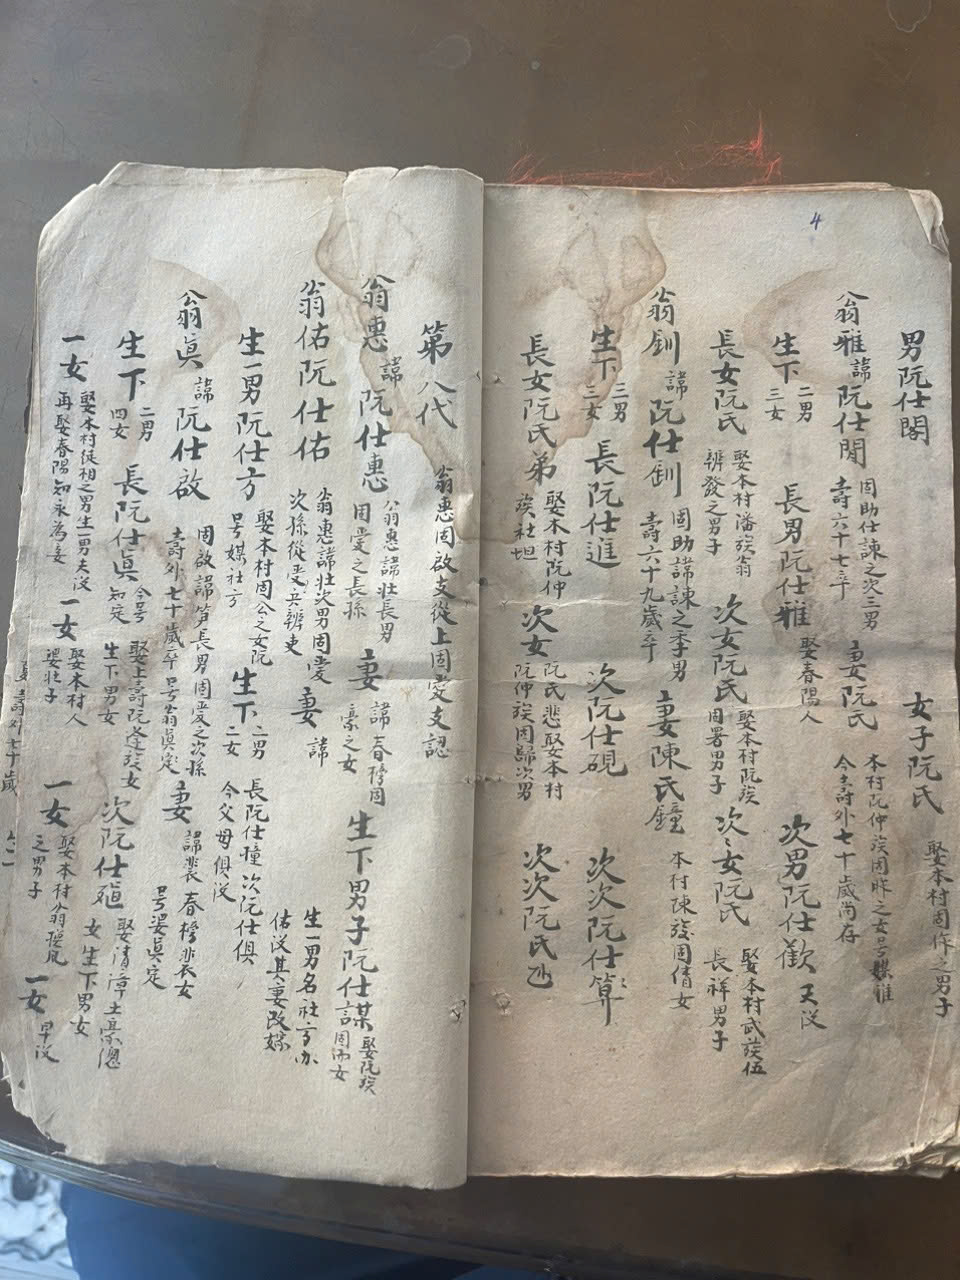 4
男阮仕閣 女子阮氏 娶本村固作之男子
翁雅諱阮仕閒 固助仕諫之次三男 壽六十七卒 妻阮氏 本村阮仲族固眯之女号媒雅 今壽外七十歲尚存
生下 二男 三女 長男阮仕雅 娶春陽人 次男阮仕歡 夭沒
長女阮氏 娶本村潘族翁 辨發之男子 次女阮氏 娶本村阮族 固署男子 次次女阮氏 娶本村武族伍 長祥男子
翁釧諱阮仕釧 固助諱諫之季男 壽六十九歲卒 妻陳氏鐘 本村陳族固倩女
生下 三男 三女 長阮仕進 次阮仕硯 次次阮仕算
長女阮氏弟 娶本村阮仲 族社坦 次女 阮氏悲娶本村 阮仲族固歸次男 次次阮氏
第八代 翁惠固啟支從上固愛支認
翁惠諱阮仕惠 翁惠諱壯長男 固愛之長孫 妻 諱春穆固 豪之女 生下男子阮仕某 娶阮族 女
生一男名社方 佑沒其妻改嫁
翁佑阮仕佑 翁惠諱壯次男固愛 次孫從受兵辨吏 妻 諱
生一男阮仕方 娶本村固公之女阮 号媒社方 生下 二男 二女 長阮仕瞳 次阮仕俱 今父母俱沒
翁眞諱阮仕啟 固啟諱笋長男固愛之次孫 壽外七十歲卒号翁眞定 妻 諱裴春穆裴女 号婆眞定
生下 二男 四女 長阮仕眞 今号 知定 生下男女 次阮仕 娶清漳土豪總 女生下男女
一女 娶本村 相之男生一男夫沒 再娶春陽知永為妾 一女 娶本村人 壯子 一女 娶本村翁 之男子 一女 早沒
壽外七十歲